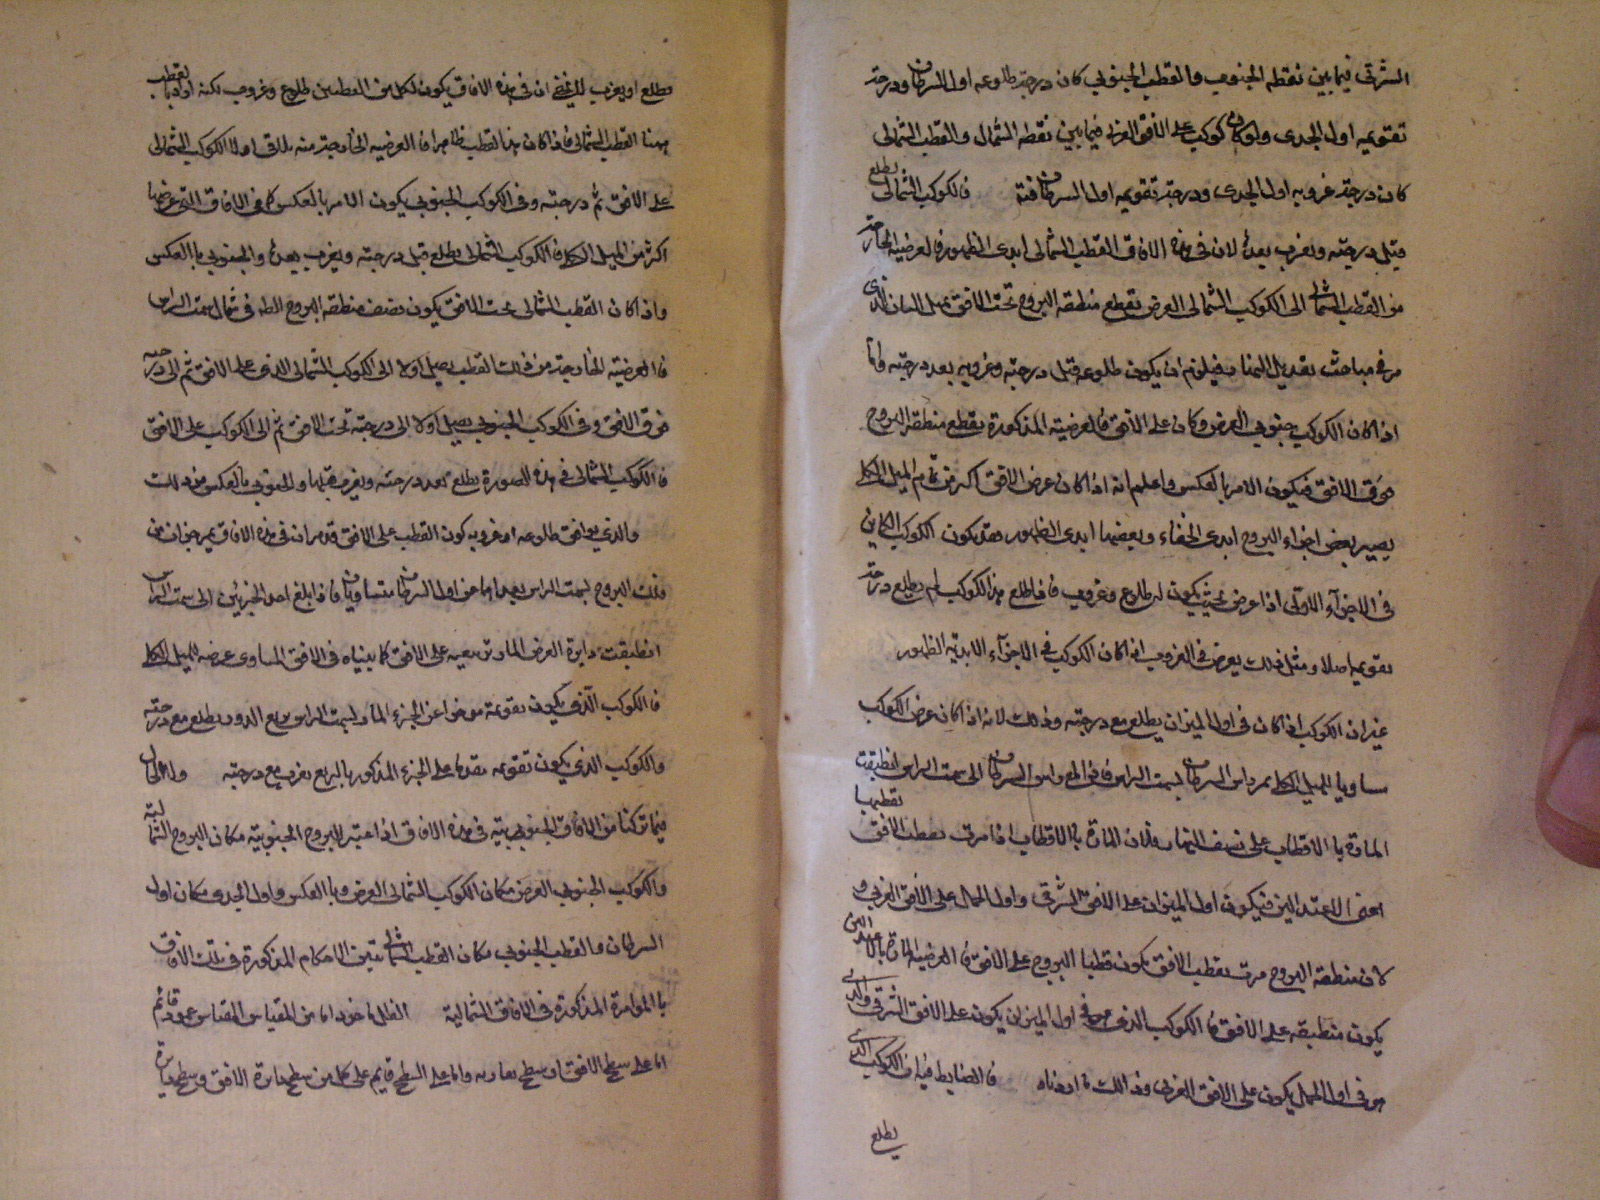 الشرقى فيما بين نقطه الجنوب والقطب الجنوبي كان درجة طلوعه اول السرطان ودرجة
تقويمه اول الجدى ولو كان كوكب على الافق الغربى فيما بين نقطه الشمال والقطب الشمالى
كان درجة غروبه اول الجدى ودرجة تقويمه اول السرطان فالكوكب الشمالى يطلع
قبل درجته ويغرب بعدها لان فى هذه الافاق القطب الشمالى ابدى الظهور فالعرضيه الخارجة
من القطب الشمالى الى الكوكب الشمالى العرض تقطع منطقه البروج تحت الافق بمثل البيان الذى
مر فى مباحث تعديل النهار فيلزم ان يكون طلوعه قبل درجته وغروبه بعد درجته واما
اذا كان الكوكب جنوبي العرض وكان على الافق فالعرضيه المذكورة يقطع منطقة البروج
فوق الافق فيكون الامر بالعكس واعلم انه اذا كان عرض الافق اكثر من تمام الميل الكلى
يصير بعض اجزاء البروج ابدى الخفاء وبعضها ابدى الظهور وقد يكون الكوكب الكاين
فى الاجزآء الاولى اذا عرض بحيث يكون له طلوع وغروب فاذا طلع هذا الكوكب لم يطلع درجة
تقويمه اصلا ومثل ذلك يعرض فى الغروب اذا كان الكوكب فى الاجزآء الابدية الظهور
غير ان الكوكب اذا كان فى اول الميزان يطلع مع درجته وذلك لانه اذا كان عرض الكوكب
مساويا للميل الكلى يمر راس السرطان بسمت الراس فاذا راس السرطان الى سمت الراس انطبقت
المارة بالاقطاب على نصف النهار فلان المارة بالاقطاب اذا مرت بقطب الافق نقطيها
اعنى الاعتدالين فيكون اول الميزان على الافق الشرقى واول الحمل على الافق الغربى و
لان منطقة البروج مرت بقطب الافق يكون قطبا البروج على الافق فالعرضيه المارة بالاعتدالين
يكون منطبقه على الافق فالكوكب الذى هو فى اول الميزان يكون على الافق الشرقى والذى
هو فى اول الحمل يكون على الافق الغربى وذلك ما اردناه فالضابط فيه ان الكوكب الذى
يطلع
يطلع او يغرب لا يخفى ان فى هذه الافاق يكون لكل من القطبين طلوع وغروب لكنه اراد بالقطب
ههنا القطب الشمالى فاذا كان هذا القطب ظاهرا فالعرضيه الخارجة منه يلاقى اولا الكوكب الشمالى
على الافق ثم درجته وفى الكوكب الجنوبي يكون الامر بالعكس كما فى الافاق التى عرضها
اكثر من الميل الكلى فالكوكب الشمالى يطلع قبل درجته ويغرب بعدها والجنوبي بالعكس
واذا كان القطب الشمالى تحت الافق يكون نصف منطقه البروج الظاهر فى شمال سمت الراس
فالعرضيه الخارجة من ذلك القطب يصل اولا الى الكوكب الشمالى الذى على الافق ثم الى درجته
فوق الافق وفى الكوكب الجنوبي يصل اولا الى درجته تحت الافق ثم الى الكوكب على الافق
فالكوكب الشمالى فى هذه الصورة يطلع بعد درجته ويغرب قبلها والجنوبي بالعكس من ذلك
والذى يوافق طلوعه او غروبه كون القطب على الافق قد مر ان فى هذه الافاق يمر جزءان من
فلك البروج بسمت الراس بعداهما عن اول السرطان متساويان فاذا بلغ احد الجزئين الى سمت الراس
انطبقت دايرة العرض المارة به على الافق كما بيناه فى الافق المساوى عرضه للميل الكلى
فالكوكب الذى يكون تقويمه موخرا عن الجزء المار بسمت الراس بربع الدور يطلع مع درجته
والكوكب الذى يكون تقويمه مقدما على الجزء المذكور بالربع يغرب مع درجته
فيما تركنا من الافاق الجنوبية فى هذه الافاق اذا اعتبر البروج الجنوبية مكان البروج الشمالية
والكوكب الجنوبي العرض مكان الكوكب الشمالى العرض وبالعكس واول الجدى مكان اول
السرطان والقطب الجنوبي مكان القطب الشمالى تعين الاحكام المذكورة فى تلك الافاق
بالموامرة المذكورة فى الافاق الشمالية الظل ماخوذ اما من المقياس المقياس عمود قائم
اما على سطح الافق او سطح يوازيه واما على السطح قايم على كل من سطح دايرة الافق وسطح دايرة